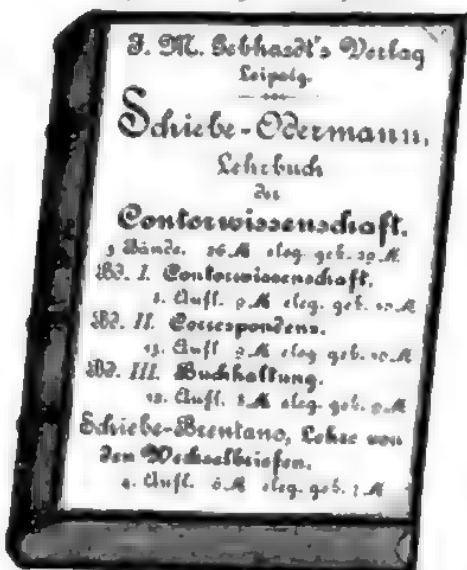 J. M. Gebhardt's Verlag
Leipzig.
Schiebe-Odermann,
Lehrbuch
der
Contorwissenschaft.
3 Bände. 26 M eleg. geb. 29 M.
Bd. I. Contorwissenschaft.
Aufl. 9 M eleg. geb. 10 M
Bd. II. Correspondenz.
13. Aufl. 9 M eleg geb. 10 M
Bd. III. Buchhaltung.
Aufl. 8 M eleg. geb. 9 M
Schiebe-Brentano, Lehre von
den Wechselbriefen.
4. Aufl. 6 M eleg. geb. 7 M